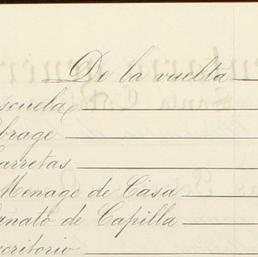 De la vuelta
scuela
brage
arretas
Menage de Casa
anato de Capilla
scritorio